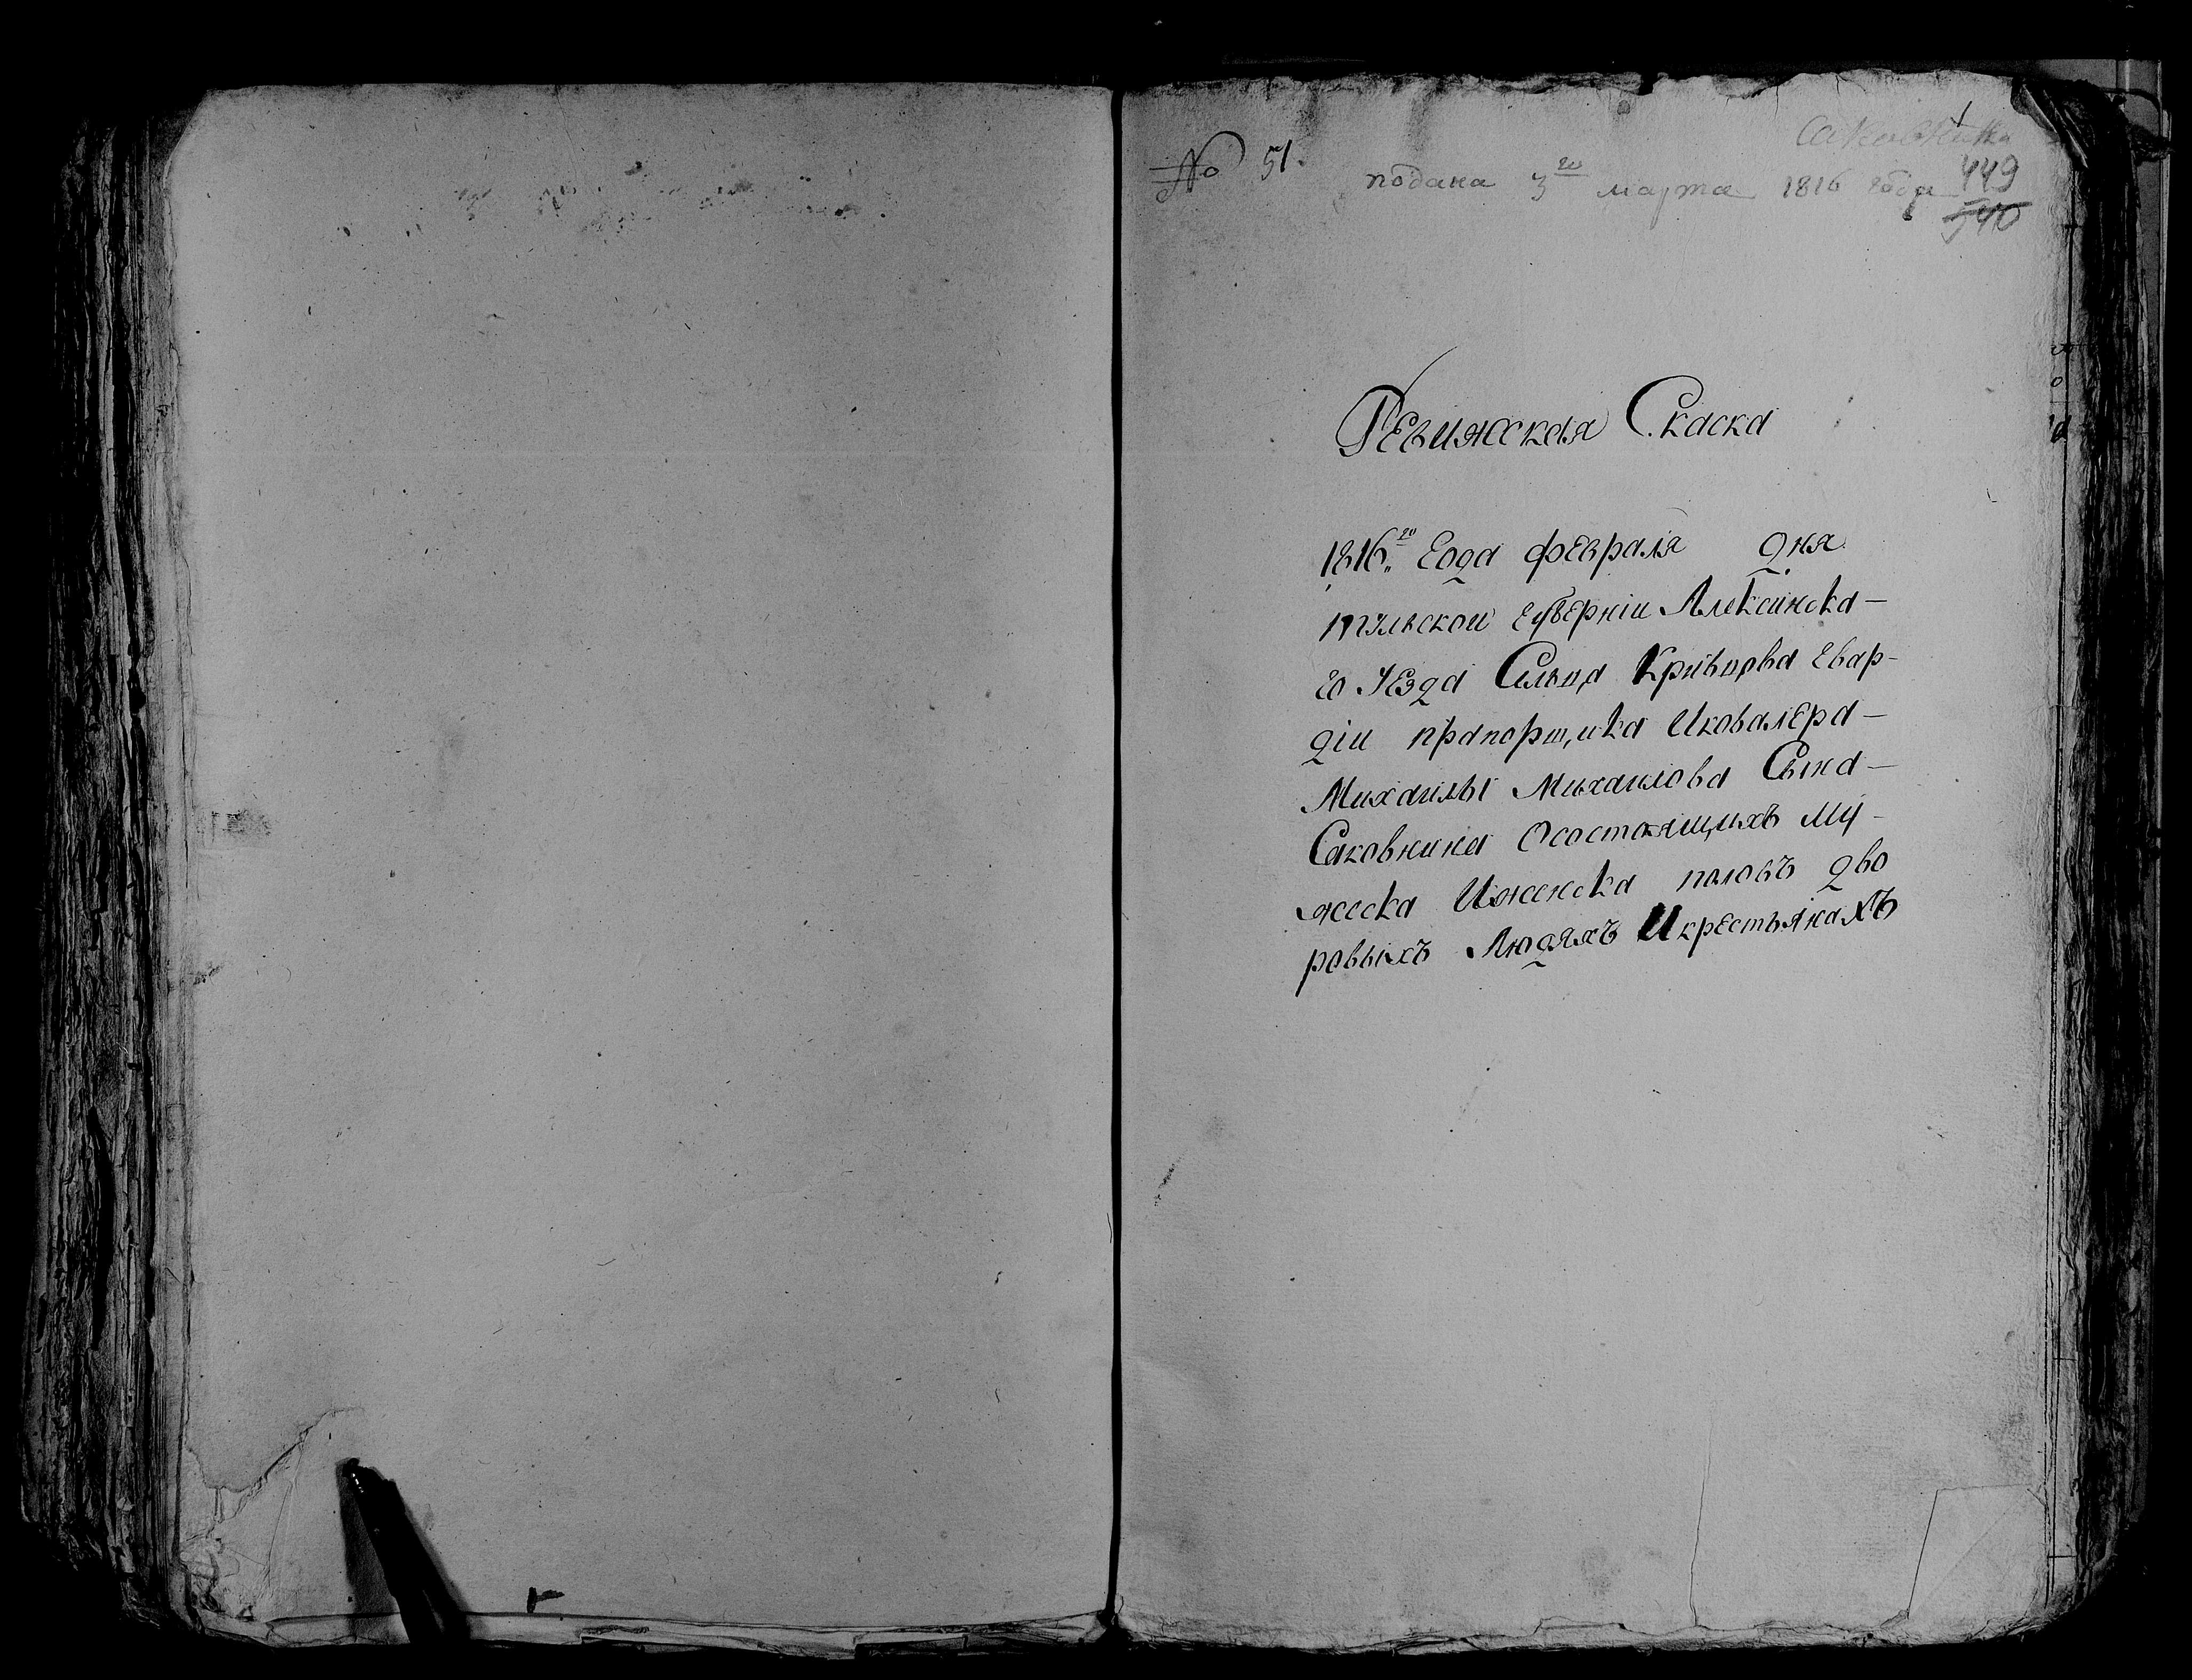 № 51. подана 3го марта 1816 года
449
540
Ревижская Скаска
1816го Года февраля дня
тульской губернiи Алексинска-
го Уезда Сельца Кривцова гвар-
дiи прапорщика Иковалера-
Михаилы Михаилова Сына-
Саковнина Осостоящихъ му-
жеска Иженска половъ дво
ровыхъ Людяхъ Икрестьянахъ